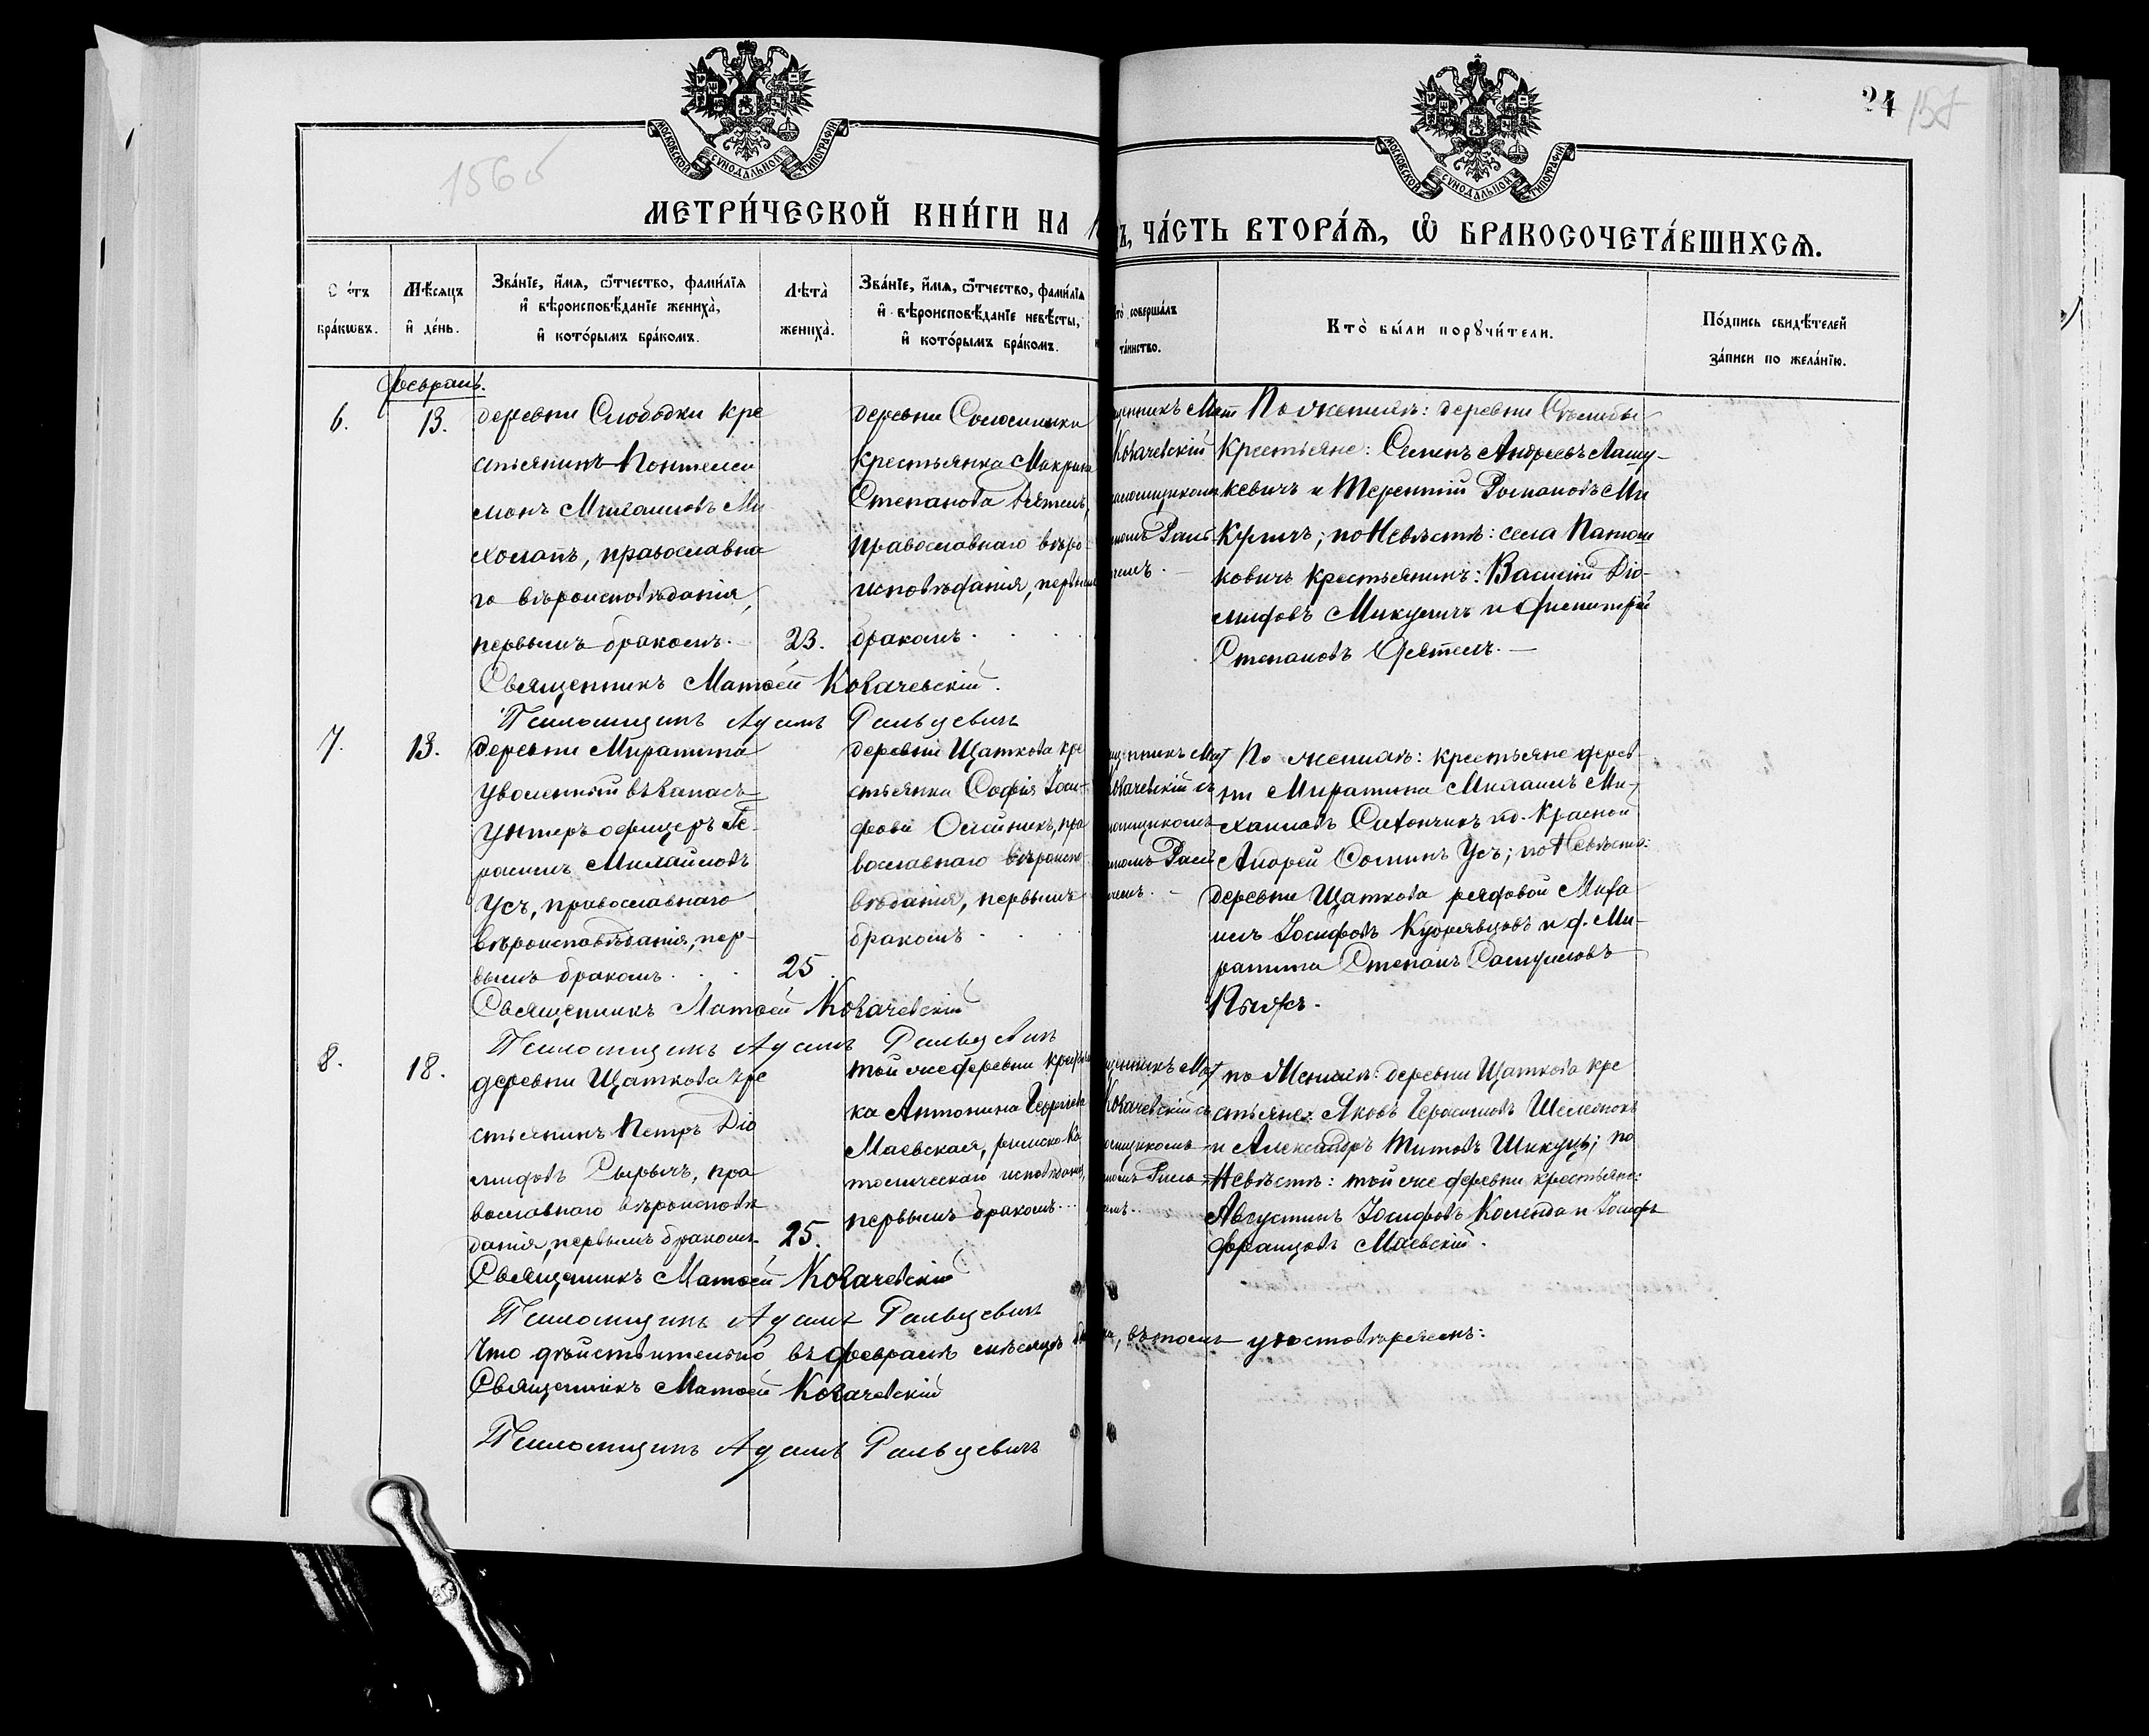 МОСКОВСКОЙ СУНОДАЛЬНОЙ ТИПОГРАФІИ
МОСКОВСКОЙ СУНОДАЛЬНОЙ ТИПОГРАФІИ
24
МЕТРИ́ЧЕСКОЙ КНИ́ГИ НА
ЧА́СТЬ ВТОРА́Ѧ, Ѽ БРАКОСОЧЕТА́ВШИХСѦ.
бра́кѡвъ.
Мѣ́сяцъ
и҆ де́нь.
Зва́нїе, и҆́мѧ, ѻ҆́тчество, фами́лїѧ
и҆ вѣроисповѣ́данїе жениха̀,
и҆ кото́рымъ бра́комъ.
Лѣ́та̀
жениха̀.
Зва́нїе, и҆́мѧ, ѻ҆́тчество, фами́лїѧ
и҆ вѣроисповѣ́данїе невѣ́сты,
и҆ кото́рымъ бра́комъ.
соверша́лъ
та́инство.
Кто̀ бы́ли порꙋчи́тели.
По́дпись свидѣ́телей
за́писи по жела́нїю.
Февраль.
6.
13.
деревни Слободки кре
стьянинъ Понтелеи
монъ Михаиловъ Ми
холапъ, православна
го вѣроисповѣданія,
первымъ бракомъ.
23.
деревни
крестьянка Макрина
Степанова
православнаго вѣро-
исповѣданія, первымъ
бракомъ
Ковачевскій
По женихѣ: деревни
крестьяне: Семенъ Андреевъ Лашу-
кевичъ и Терентій Романовъ Ми
куличъ; по Невѣстѣ: села Паточ
ковичъ крестьянинъ: Василій Діо-
мидовъ Микуличъ и Дмитрій
Степановъ
Священникъ Матѳей Ковачевскій.
Псаломщикъ Адамъ Ральцевичъ
7.
13.
деревни Миратина
уволенный въ запасъ
Унтеръ офицеръ Ге-
расимъ Михайловъ
Усъ, православнаго
вѣроисповѣданія, пер-
вымъ бракомъ
25
деревни Щаткова кре
стьянка Софія Іоси-
фова Олейникъ, пра
вославнаго вѣроиспо
вѣданія, первымъ
бракомъ
Ковачевскій съ
По женихѣ: крестьяне дерев
ни Миратина Михаилъ Ми-
хаиловъ и д. Красной
Андрей Ѳоминъ Усъ; по Невѣстѣ:
деревни Щаткова рядовой Миха
илъ Іосифовъ Кудрявцовъ и д. Ми-
ратина Степанъ Самуиловъ
Священникъ Матѳей Ковачевскій
Псаломщикъ Адамъ Ральцевичъ
8.
18.
деревни Щаткова кре
стьянинъ Петръ Діо
мидовъ Сырычъ, пра
вославнаго вѣроисповѣ
данія, первымъ бракомъ.
25.
той же деревни
ка Антонина Георгіева
Маевская, римско-ка
толическаго исповѣданія,
первымъ бракомъ
Ковачевскій съ
по Женихѣ: деревни Щаткова кре
стьяне: Яковъ Герасимовъ
и Александръ Титовъ Шикуцъ; по
Невѣстѣ: той же деревни крестьяне:
Августинъ Іосифовъ Коленда и Іосифъ
Францовъ Маевскій.
Священникъ Матѳей Ковачевскій
Псаломщикъ Адамъ Ральцевичъ
Что дѣйствительно въ февралѣ мѣсяцѣ въ томъ удостовѣряемъ:
Священникъ Матѳей Ковачевскій
Псаломщикъ Адамъ Ральцевичъ